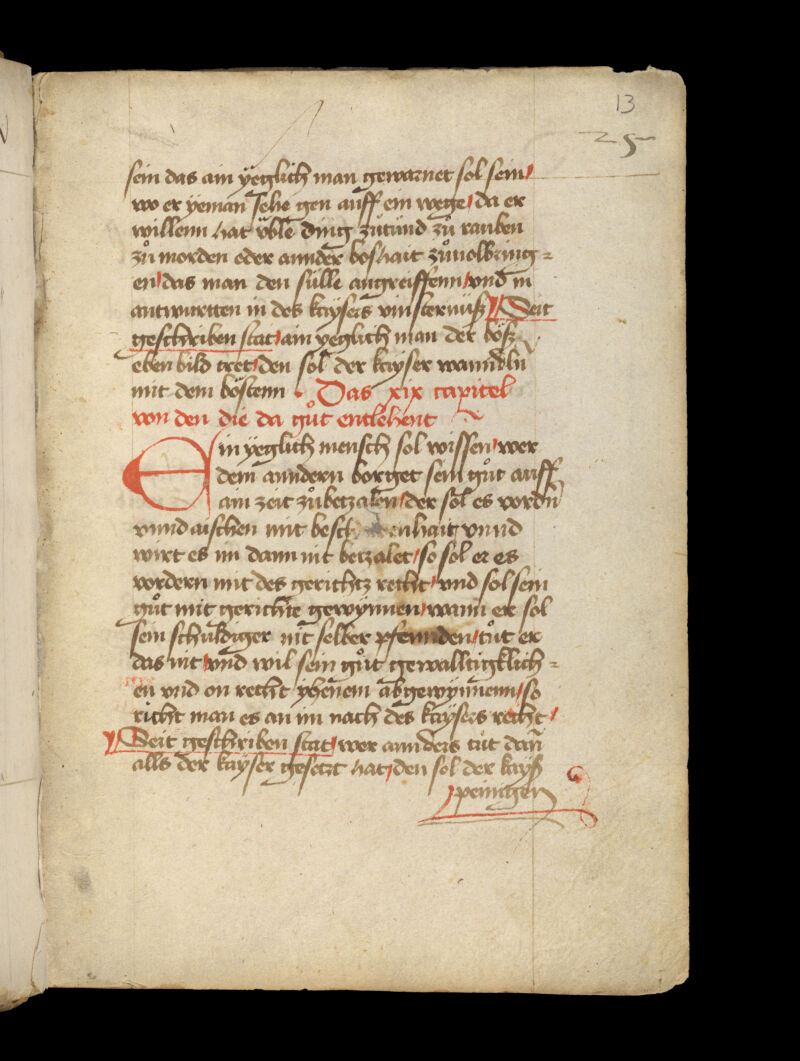 13
25
sein das ain yeglich man gewarnet sol sein /
wo er yeman sehe gen auff ein wege / da er
willenn hat vble ding zůtůnd zů rauben
zů morden oder annder boshait zůuolbring=
en / das man den sülle angreiffenn / vnd in
antwurtten in des kaysers vinsternüß / Seit
geschriben stat / ain yeglich man der böß
eben bild tret / den sol der kayser wanndeln
mit dem böstenn · Das xix capitel
von den die da gůt entlehent
Ein yeglich mensch sol wissen / wer
dem anndern borget sein gůt auff
ain zeit zůbetzalen / der sol es vordn̄
vnnd aischen mit vnnd
wirt es im dann nit betzalet / so sol er es
vordern mit des gerichtz recht / vnd sol sein
gůt mit gerichte gewynnen / wann er sol
sein schuldiger nit selber pfennden / tůt er
das nit / vnd wil sein gůt gewalltigklich=
en vnd on recht yhenem abgewynnenn / so
richt man es an im nach des kaysers recht /
Seit geschriben stat / wer annders tůt dan̄
alls der kayser gesetzt hat / den sol der kayß
peinigen